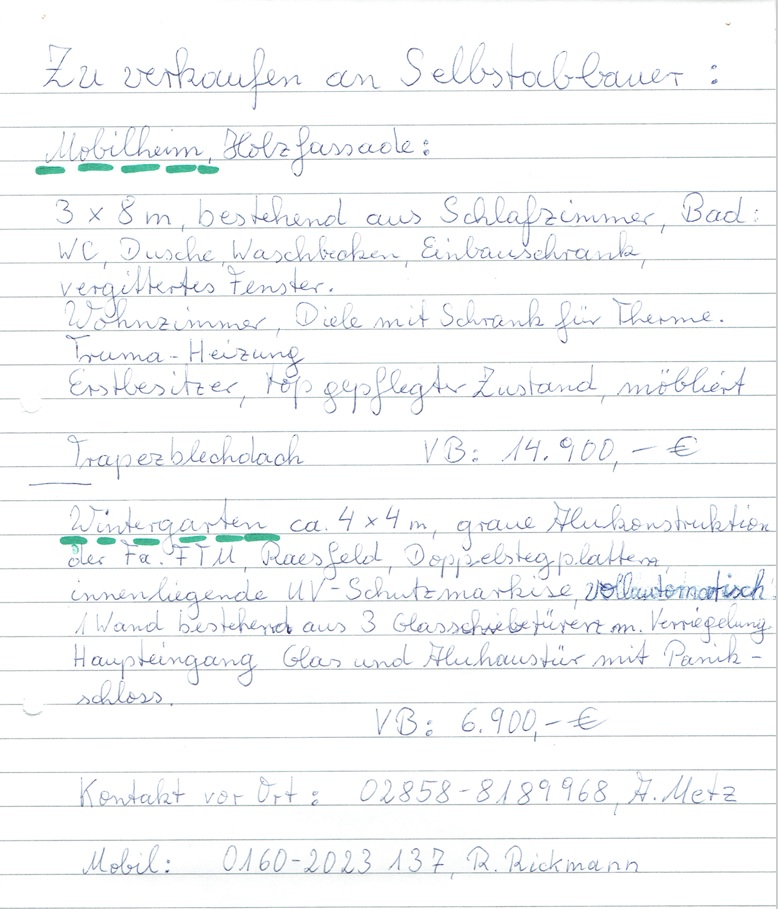 Zu verkaufen an Selbstabbauer :
Mobilheim, Holzfassade :
3 x 8 m, bestehend aus Schlafzimmer, Bad:
WC, Dusche, Waschbecken, Einbauschrank,
vergittertes Fenster.
Wohnzimmer, Diele mit Schrank für Therme.
Truma-Heizung
Erstbesitzer, top gepflegter Zustand, möbliert
Trapezblechdach VB: 14.900,- €
Wintergarten ca. 4 x 4 m, graue Alukonstruktion
der Fa. FTM, Raesfeld, Doppelstegplatten,
innenliegende UV-Schutzmarkise, vollautomatisch.
1 Wand bestehend aus 3 Glasschiebetüren m. Verriegelung
Haupteingang Glas und Aluhaustür mit Panik-
schloss.
VB: 6.900,- €
Kontakt vor Ort : 02858-8189968, A. Metz
Mobil: 0160-2023 137, R. Rickmann